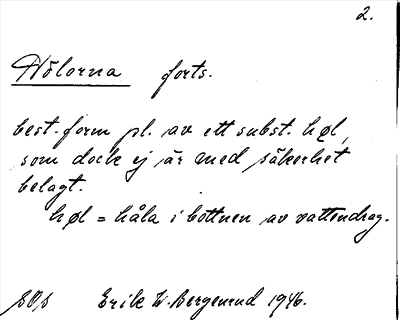 2.
Hölorna forts.
best. form pl. av ett subst. høl,
som dock ej är med säkerhet
belagt.
høl = håla i bottnen av vattendrag.
Erik W. Bergenrud 1946.